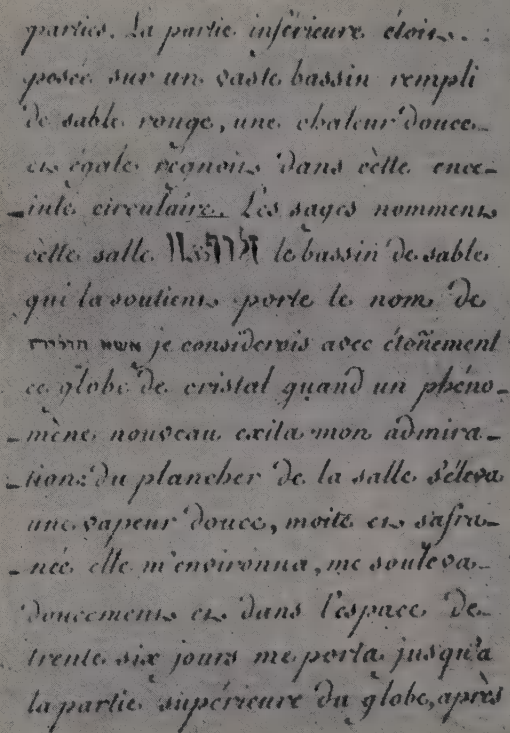 parties. La partie inférieure étoit
posée sur un vaste bassin rempli
de sable rouge, une chaleur douce
et égale regnoit dans cette ence-
-inte circulaire. Les sages nomment
cette salle le bassin de sable
qui la soutient porte le nom de
אשא je considerois avec étoñement
ce globe de cristal quand un phéno-
-mène nouveau exita mon admira-
-tion: du plancher de la salle s'éleva
une vapeur douce, moite et safra-
-née elle m'environna, me souleva
doucement et dans l'espace de
trente six jours me porta jusqu'a
la partie supérieure du globe, après